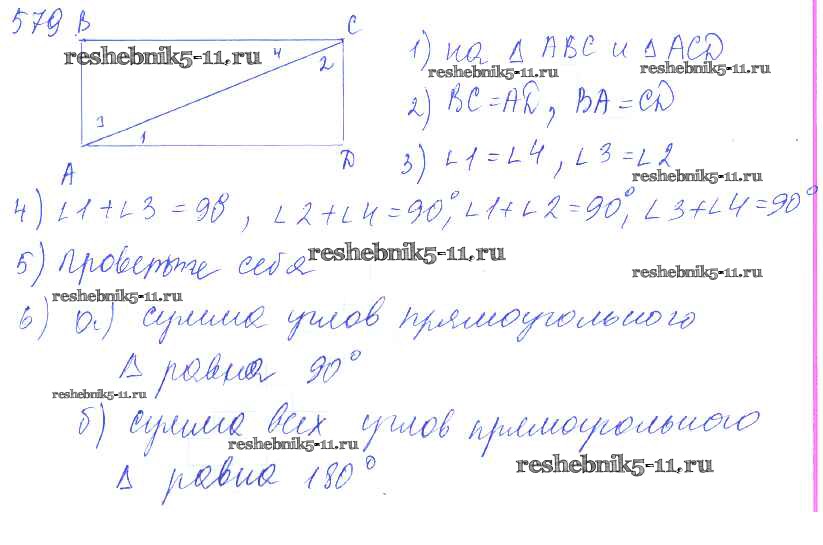 579 B C
reshebnik5-11.ru
4 2
3 1
A D
1) на Δ ABC и Δ ACD
reshebnik5-11.ru reshebnik5-11.ru
2) BC = AD, BA = CD
3) ∠1 = ∠4, ∠3 = ∠2
reshebnik5-11.ru
4) ∠1 + ∠3 = 90°, ∠2 + ∠4 = 90°, ∠1 + ∠2 = 90°, ∠3 + ∠4 = 90°
reshebnik5-11.ru
5) Проверьте себя
reshebnik5-11.ru
reshebnik5-11.ru
6) а) сумма углов прямоугольного
Δ равна 90°
reshebnik5-11.ru
б) сумма всех углов прямоугольного
reshebnik5-11.ru
Δ равна 180°
reshebnik5-11.ru